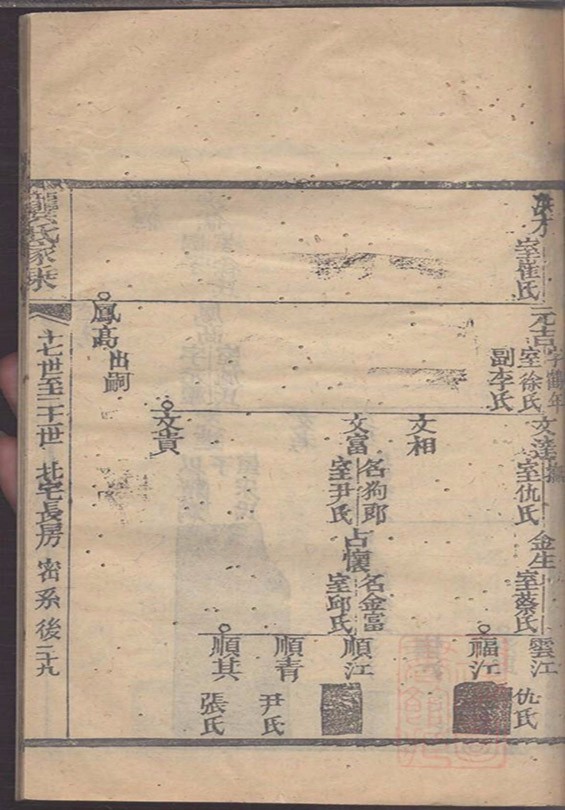 室崔氏
元吉
字鶴年
室徐氏
副李氏
鳳高
出嗣
文達
室仇氏
文相
文富
名狗郎
室尹氏
文貴
金生
室蔡氏
占懷
名金富
室邱氏
雲江
仇氏
福江
順江
順青
尹氏
順其
張氏
龔氏家乘
十七世至二十世
北宅長房
密系後
二十九